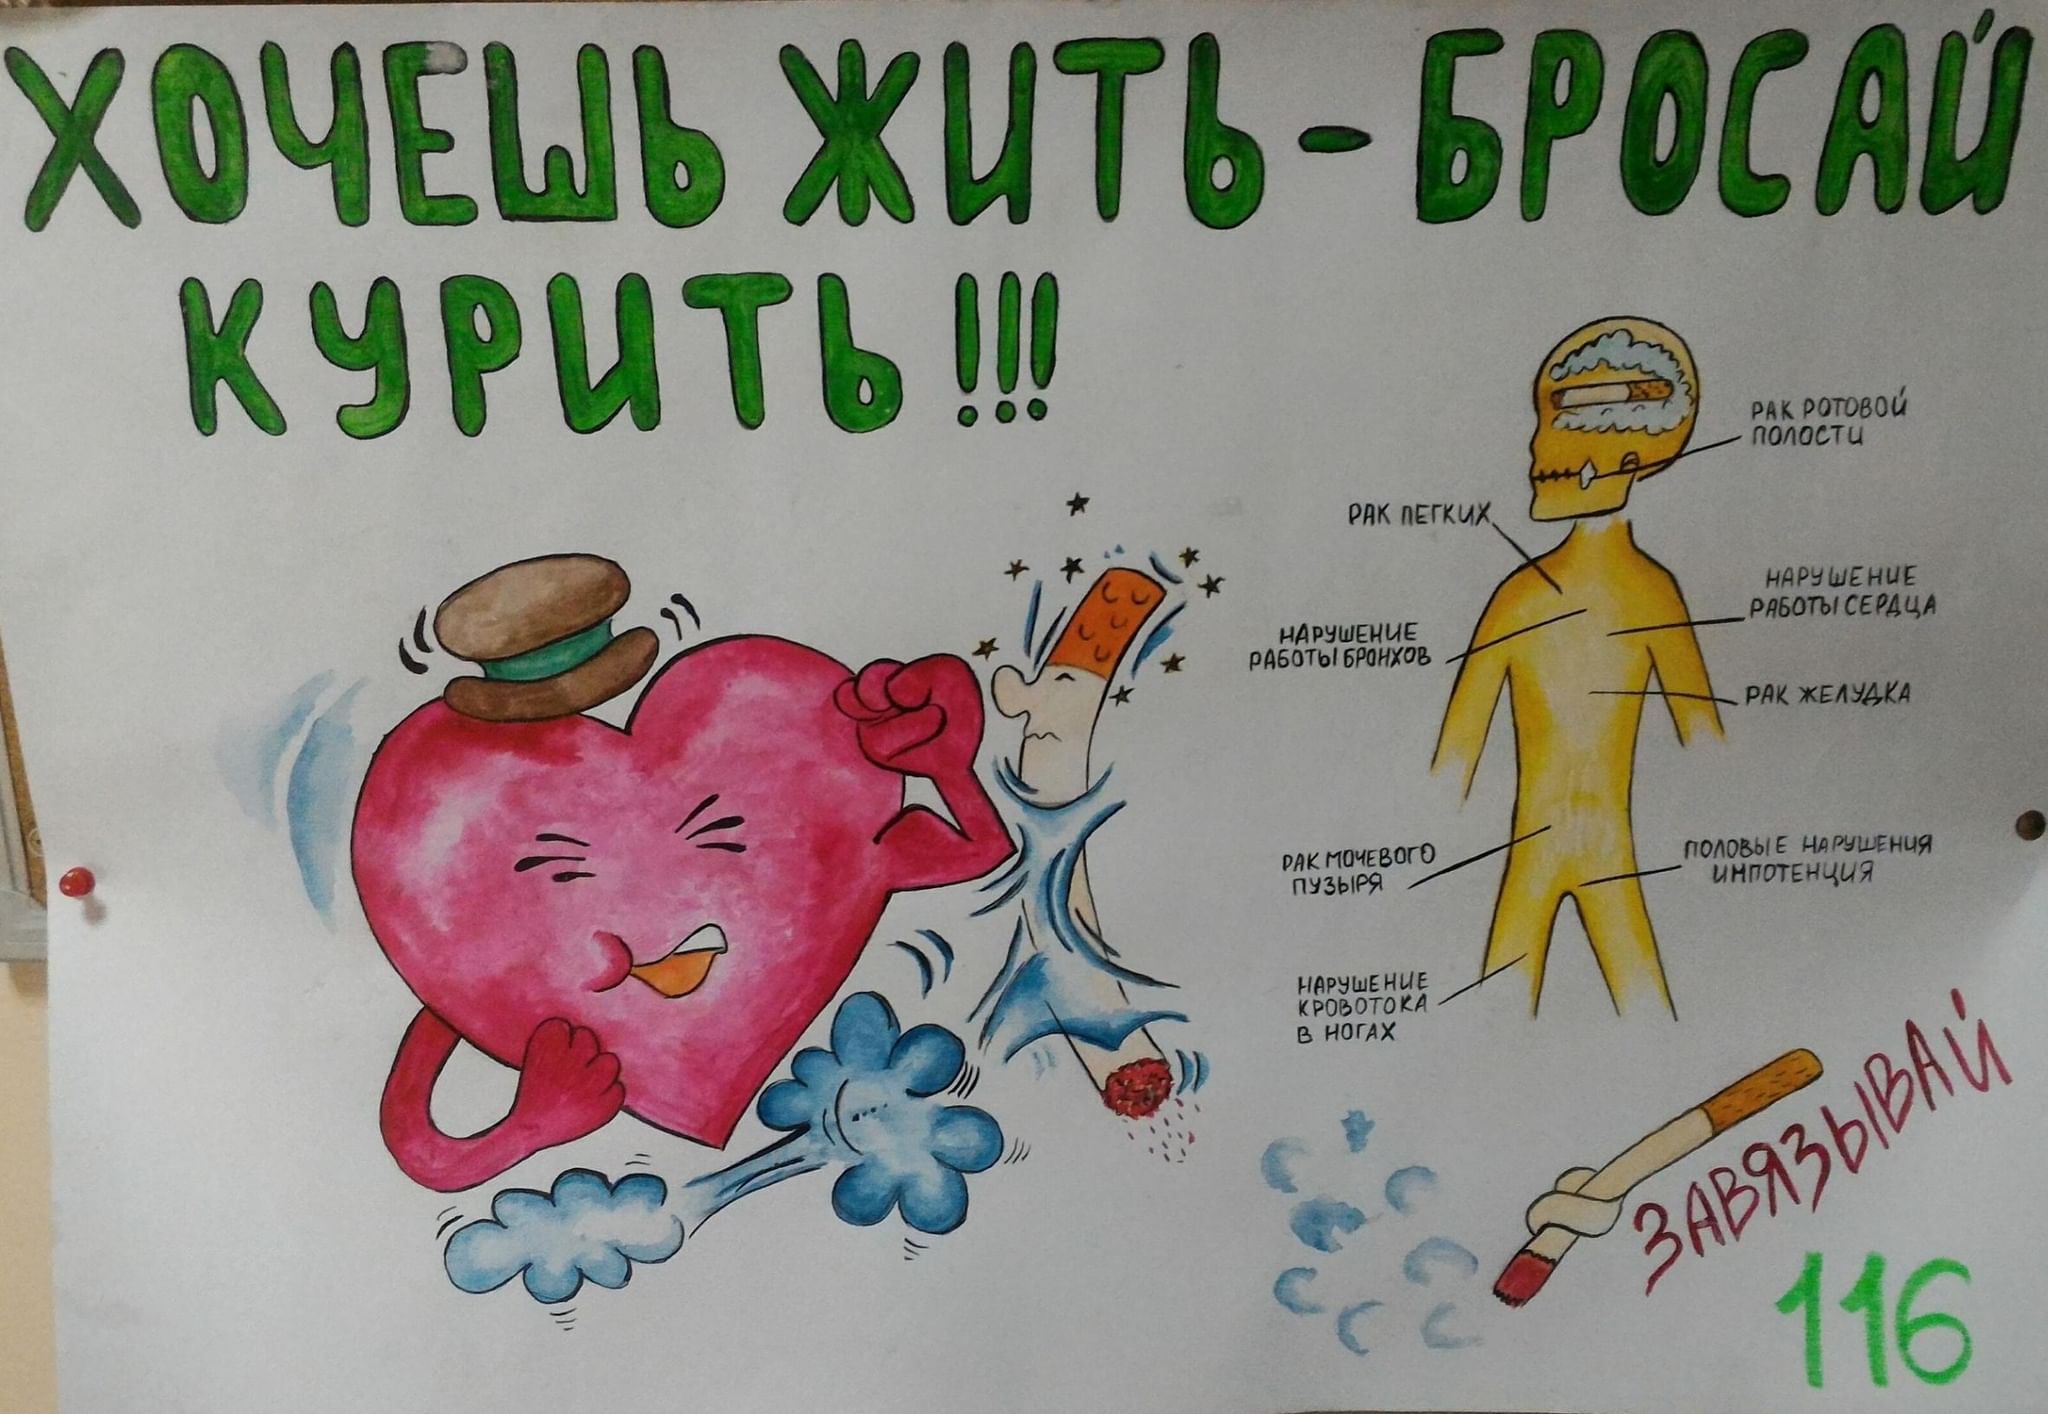 ХОЧЕШЬ ЖИТЬ - БРОСАЙ
КУРИТЬ !!!
РАК РОТОВОЙ
ПОЛОСТИ
РАК ЛЕГКИХ
НАРУШЕНИЕ
РАБОТЫ СЕРДЦА
НАРУШЕНИЕ
РАБОТЫ БРОНХОВ
РАК ЖЕЛУДКА
РАК МОЧЕВОГО
ПУЗЫРЯ
ПОЛОВЫЕ НАРУШЕНИЯ
ИМПОТЕНЦИЯ
НАРУШЕНИЕ
КРОВОТОКА
В НОГАХ
ЗАВЯЗЫВАЙ
116